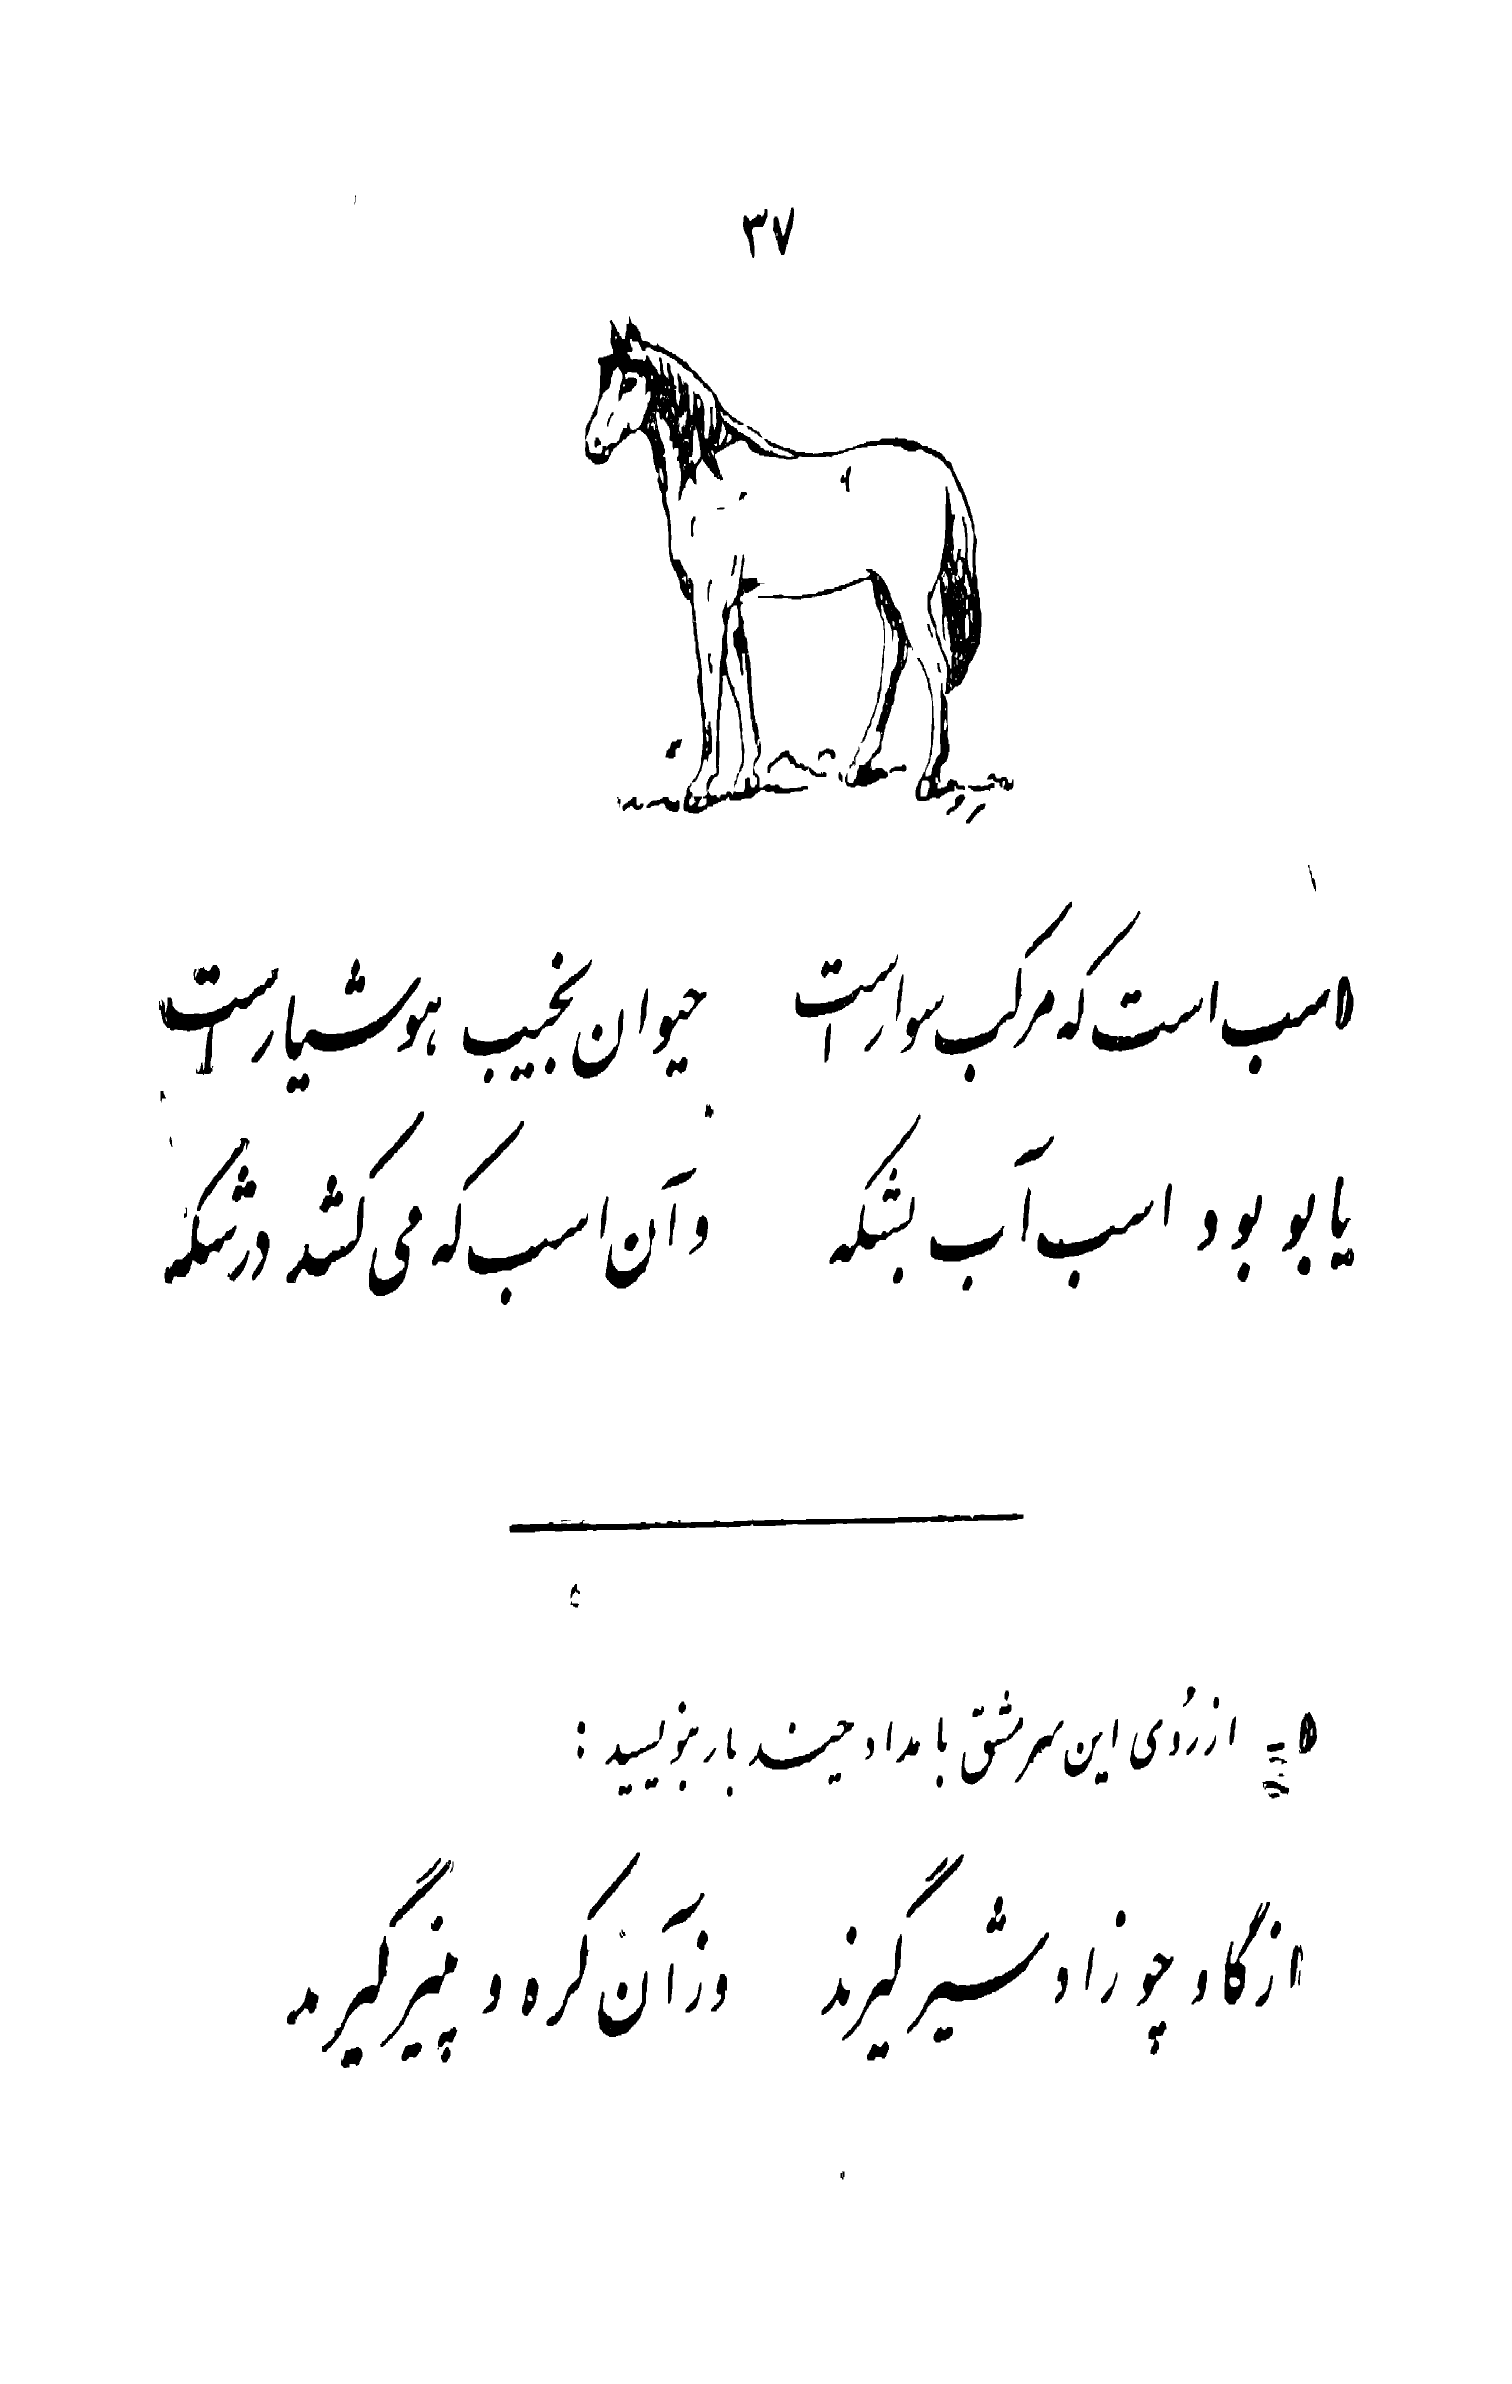 ۳۷
اسب است که مرکب سوار است حیوان نجیب هوشیار است
یابو بود اسب آب بشکه و آن اسب که می کشد درشکه
۵ = از رُوی این سرمشق با مداد چند بار بنویسید :
از گاو چو زاد شیر گیرند وز آن کره و پنیر گیرند